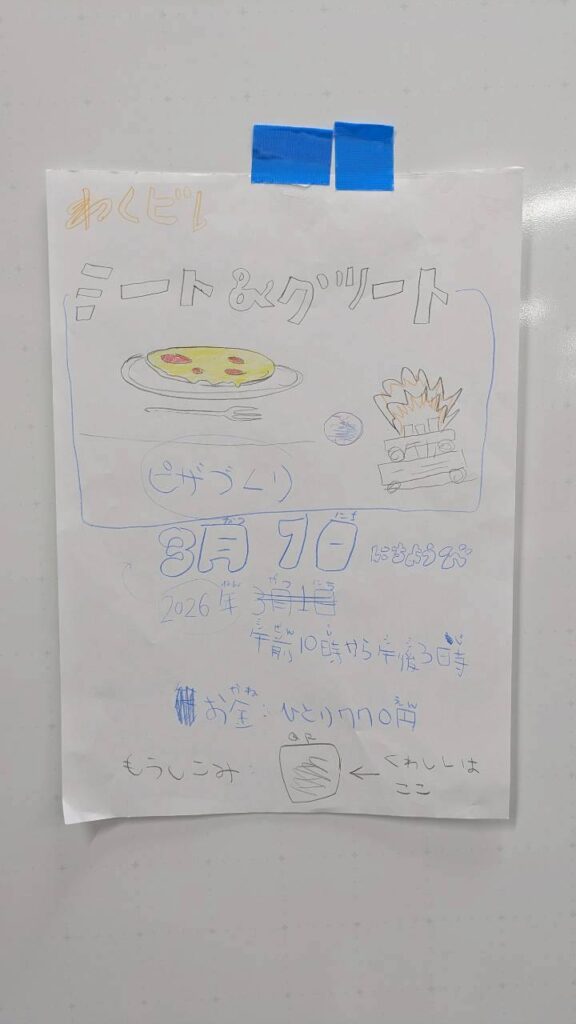 わくビル
ミート&グリート
ピザづくり
3月1日 にちようび
2026年 3月1日
午前10時から午後3時
お金:ひとり770円
QR
もうしこみ: ← くわしくは
ここ